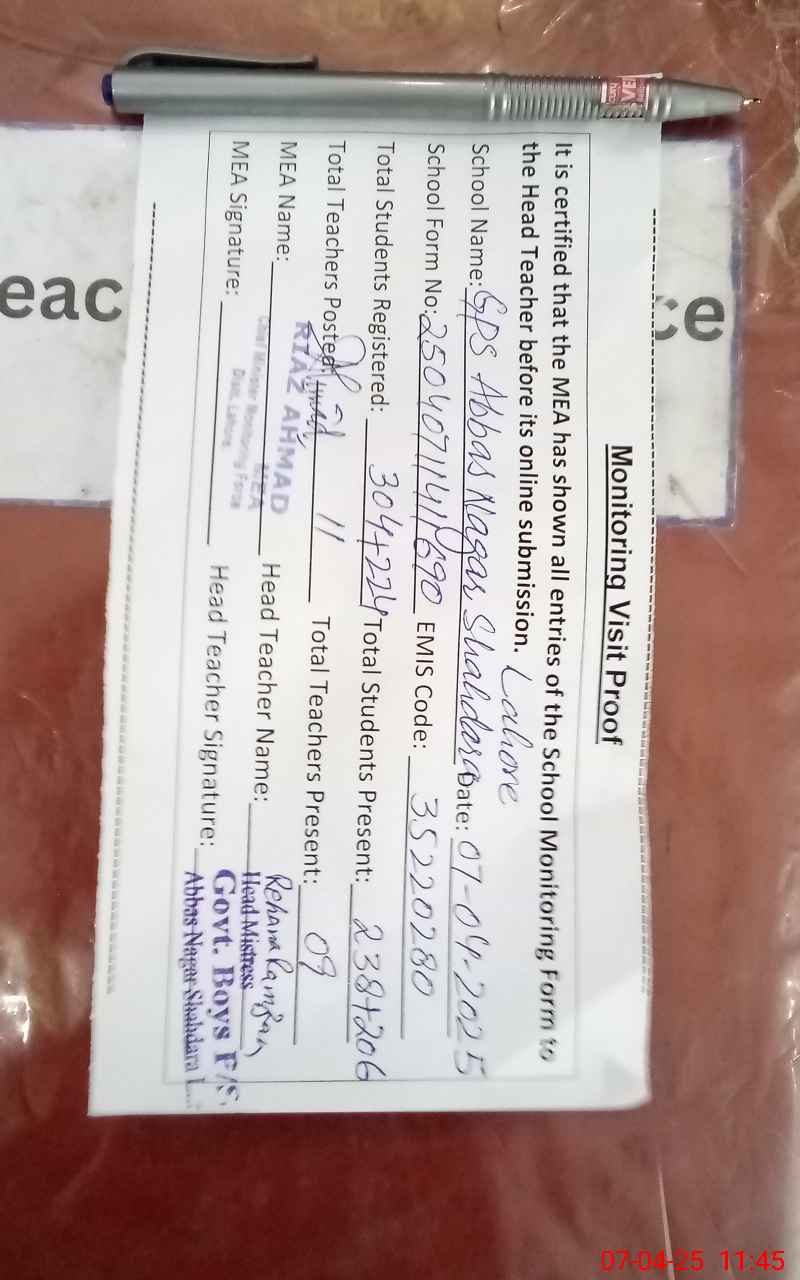 Monitoring Visit Proof
It is certified that the MEA has shown all entries of the School Monitoring Form to
the Head Teacher before its online submission. Lahore
School Name: GPS Abbas Nagar Shahdara Date: 07-04-2025
School Form No: 25040711411690 EMIS Code: 35220280
Total Students Registered: 304+224 Total Students Present: 238+206
Total Teachers Posted: 11 Total Teachers Present: 09
MEA Name: RIAZ AHMAD Head Teacher Name: Rehana Ramzan
MEA
Chief Minister Monitoring Force
Distt. Lahore
Head Mistress
MEA Signature: Head Teacher Signature: Govt. Boys P/S
Abbas Nagar Shahdara
eac
ce
07-04-25 11:45